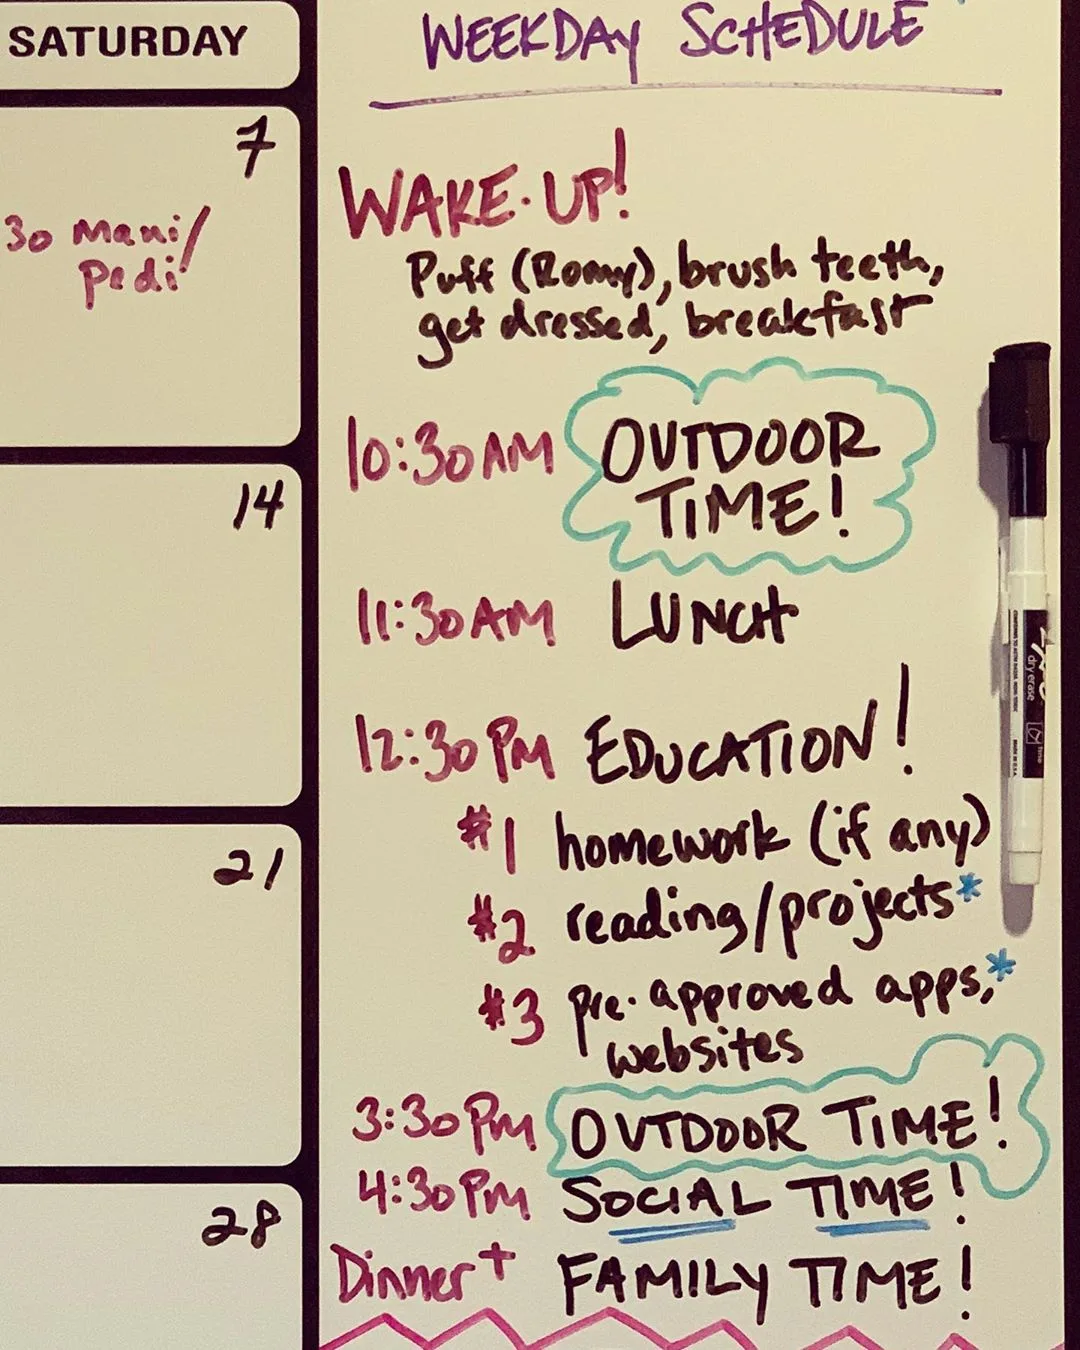 SATURDAY
7
30 Mani/
Pedi
14
21
28
WEEKDAY SCHEDULE
WAKE-UP!
Puff (Romy), brush teeth,
get dressed, breakfast
10:30AM OUTDOOR
TIME!
11:30AM LUNCH
12:30PM EDUCATION!
#1 homework (if any)
#2 reading/projects*
#3 pre-approved apps,*
websites
3:30PM OUTDOOR TIME!
4:30PM SOCIAL TIME!
Dinner + FAMILY TIME!
dry erase